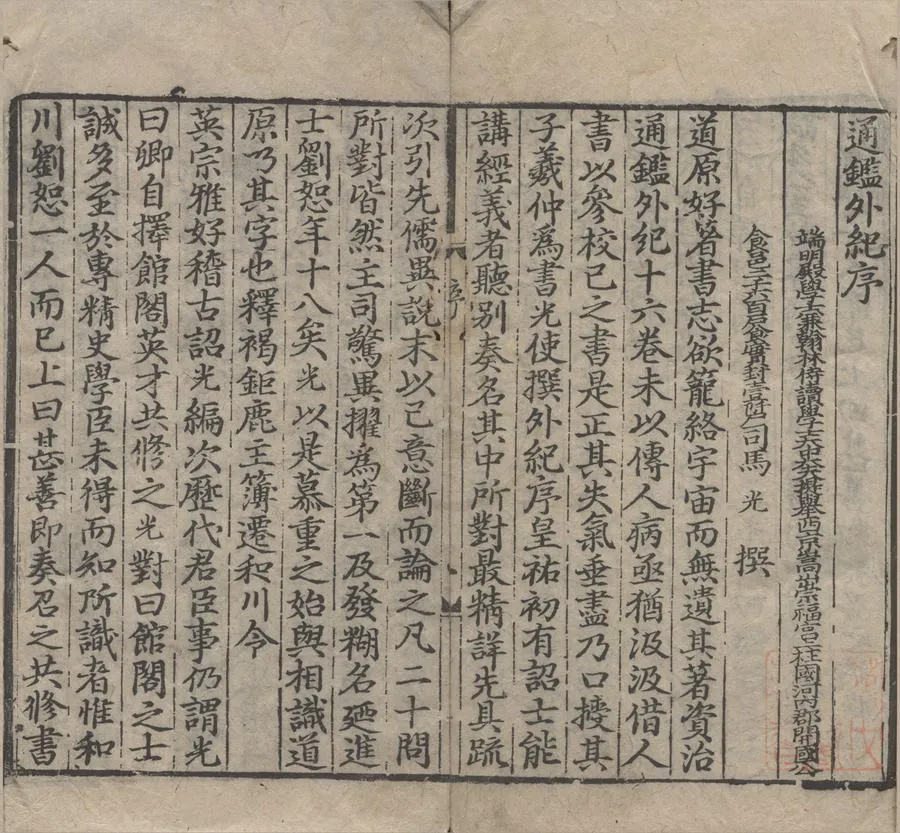 通鑑外紀序
端明殿學士兼翰林侍讀學士太中大夫提舉西京嵩山崇福宮上柱國河內郡開國公
食邑二千六百戶食實封壹阡戶司馬光 撰
道原好著書志欲籠絡宇宙而無遺其著資治
通鑑外紀十六卷未以傳人病亟猶汲汲借人
書以參校已之書是正其失氣垂盡乃口授其
子羲仲爲書光使撰外紀序皇祐初有詔士能
講經義者聽别奏名其中所對最精詳先具疏
序
次引先儒異說末以已意斷而論之凡二十問
所對皆然主司驚異擢爲第一及發糊名廼進
士劉恕年十八矣光以是慕重之始與相識道
原乃其字也釋褐鉅鹿主簿遷和川令
英宗雅好稽古詔光編次歷代君臣事仍謂光
曰卿自擇館閣英才共修之光對曰館閣之士
誠多至於專精史學臣未得而知所識者惟和
川劉恕一人而已上曰甚善即奏召之共修書